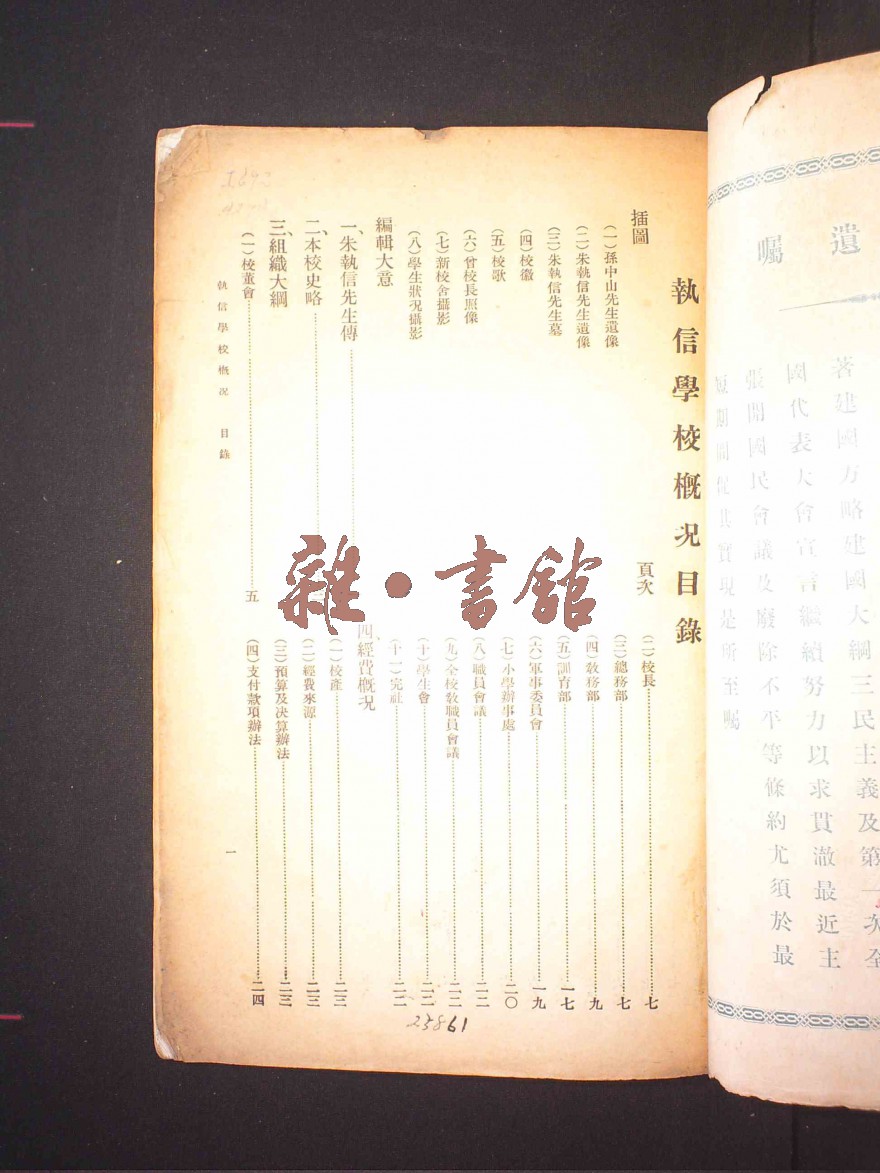 遺囑
著建國方略建國大綱三民主義及第一次全
國代表大會宣言繼續努力以求貫澈最近主
張開國民會議及廢除不平等條約尤須於最
短期間促其實現是所至囑
執信學校概况目錄
頁次
插圖
(一)孫中山先生遺像
(二)朱執信先生遺像
(三)朱執信先生墓
(四)校徽
(五)校歌
(六)曾校長照像
(七)新校舍攝影
(八)學生狀况攝影
編輯大意
一、朱執信先生傳
二、本校史略
三、組織大綱
(一)校董會 五
(二)校長 七
(三)總務部 七
(四)教務部 九
(五)訓育部 一七
(六)軍事委員會 一九
(七)小學辦事處 二〇
(八)職員會議 二二
(九)全校教職員會議 二二
(十)學生會 二二
(十一)完社 二二
四、經費概况
(一)校產 二三
(二)經費來源 二三
(三)預算及决算辦法 二三
(四)支付款項辦法 二四
執信學校概况 目錄
一
23861
雜·書館